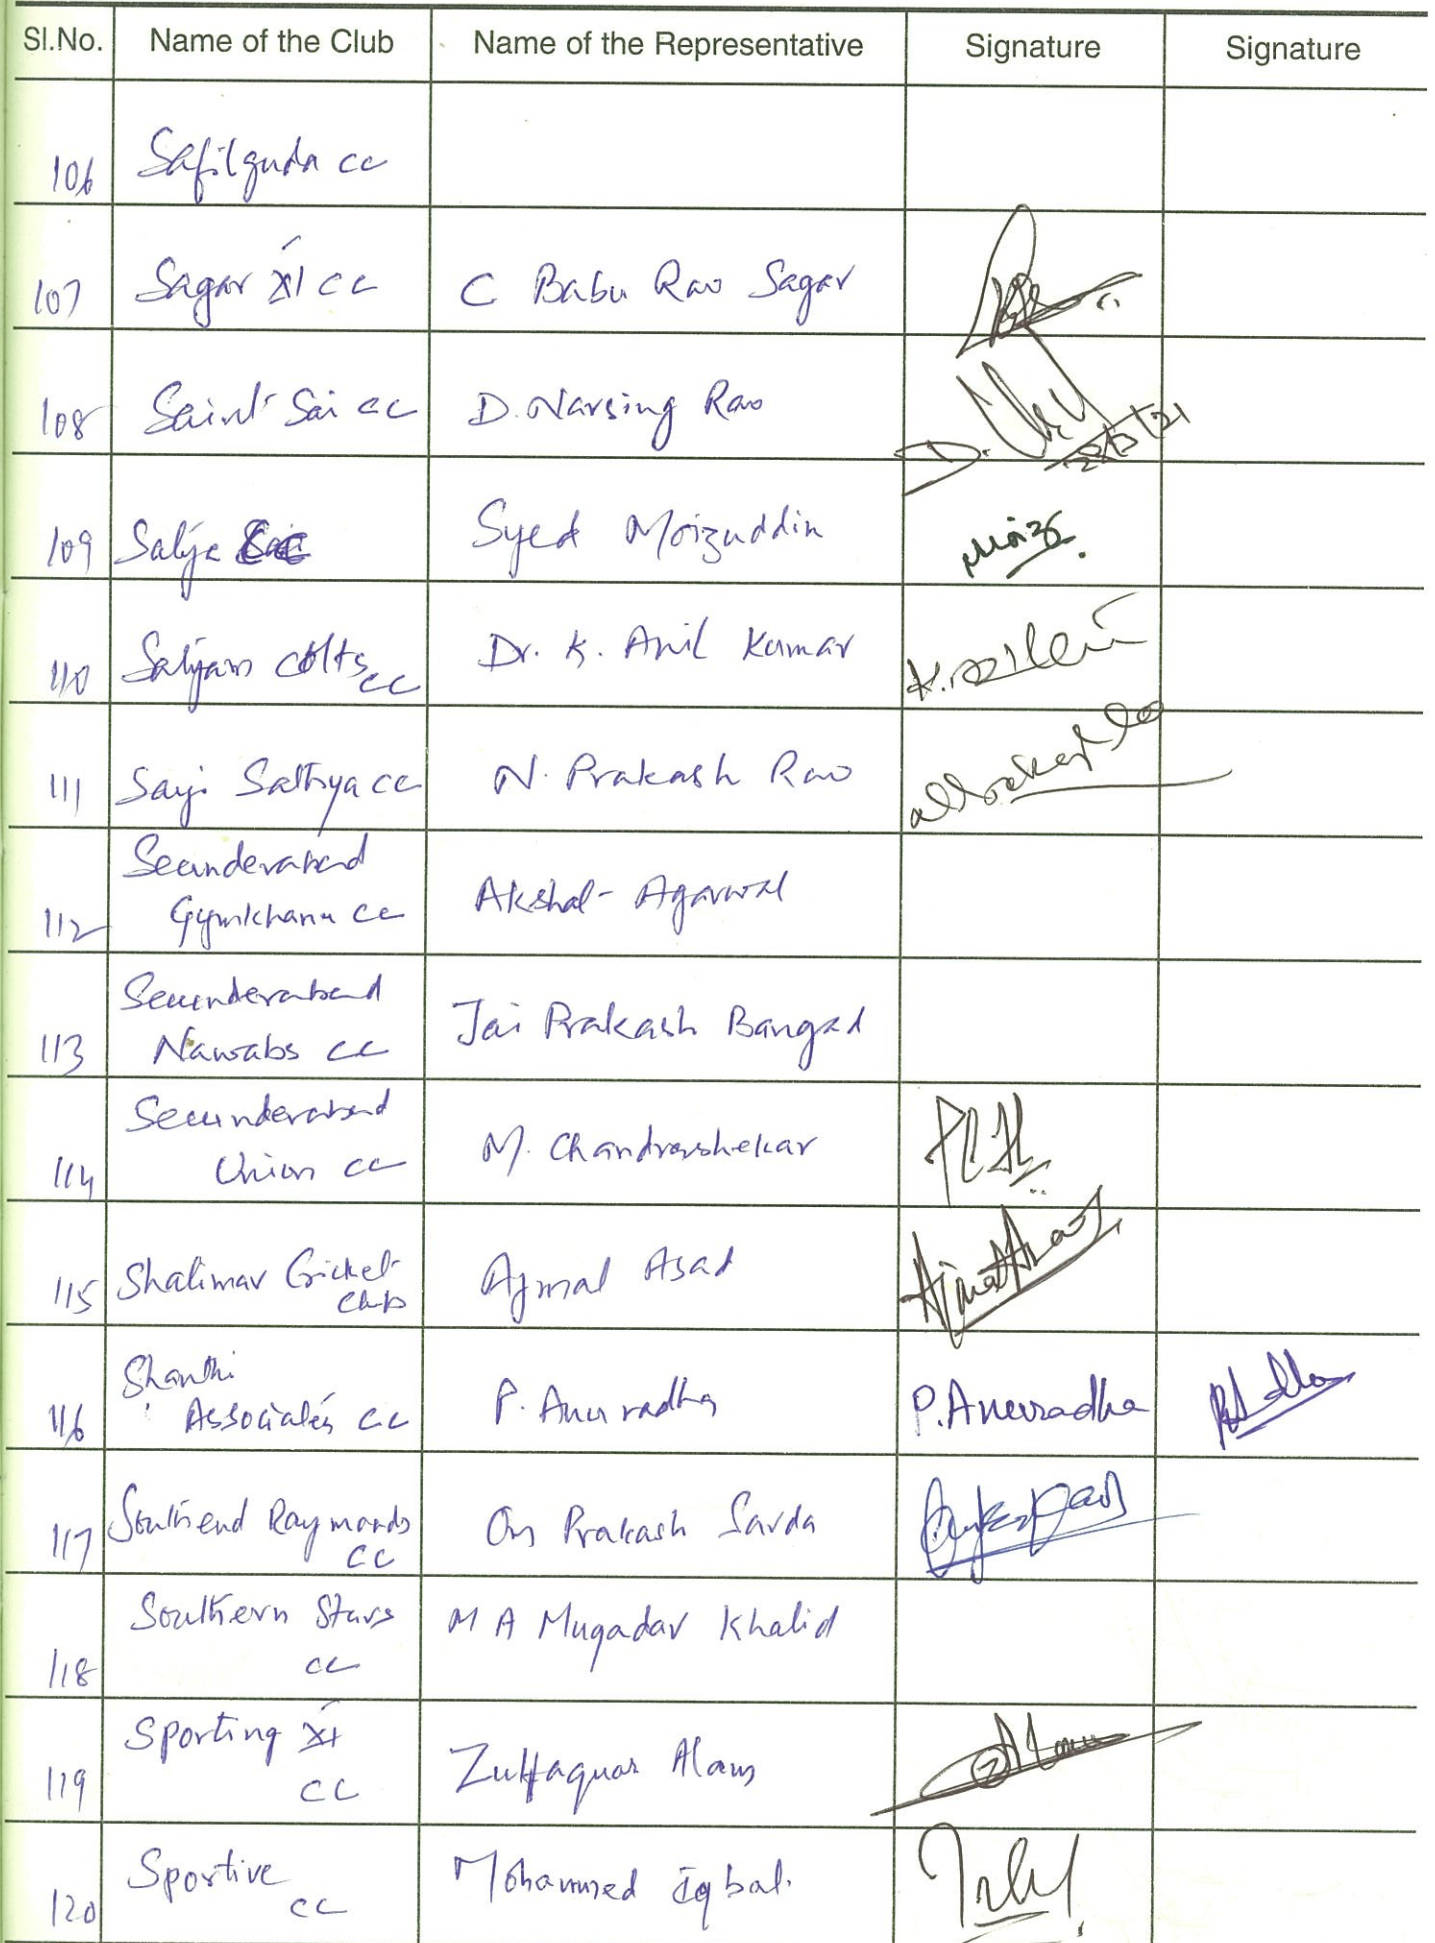 Sl.No. Name of the Club Name of the Representative Signature Signature
106 Safilguda CC
107 Sagar XI CC C Babu Rao Sagar
108 Saint Sai CC D. Narsing Rao
109 Satya CC Syed Moizuddin Moiz
110 Satyam Colts CC Dr. K. Anil Kumar
111 Sayi Sathya CC N. Prakash Rao
Secunderabad
112 Gymkhana CC Akshat Agarwal
Secunderabad
113 Nawabs CC Jai Prakash Bangad
Secunderabad
114 Union CC M. Chandrashekar
115 Shalimar Cricket Ajmal Asad
Club
Shanthi
116 Associates CC P. Anuradha P. Anuradha
117 Southend Raymonds Om Prakash Sarda
CC
Southern Stars M A Muqadar Khalid
118 CC
Sporting XI
119 CC Zulfaquar Alam
Sportive Mohammed Iqbal.
120 CC